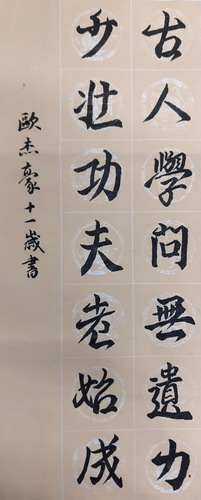 古人學問無遺力
少壯功夫老始成
歐杰豪十一歲書